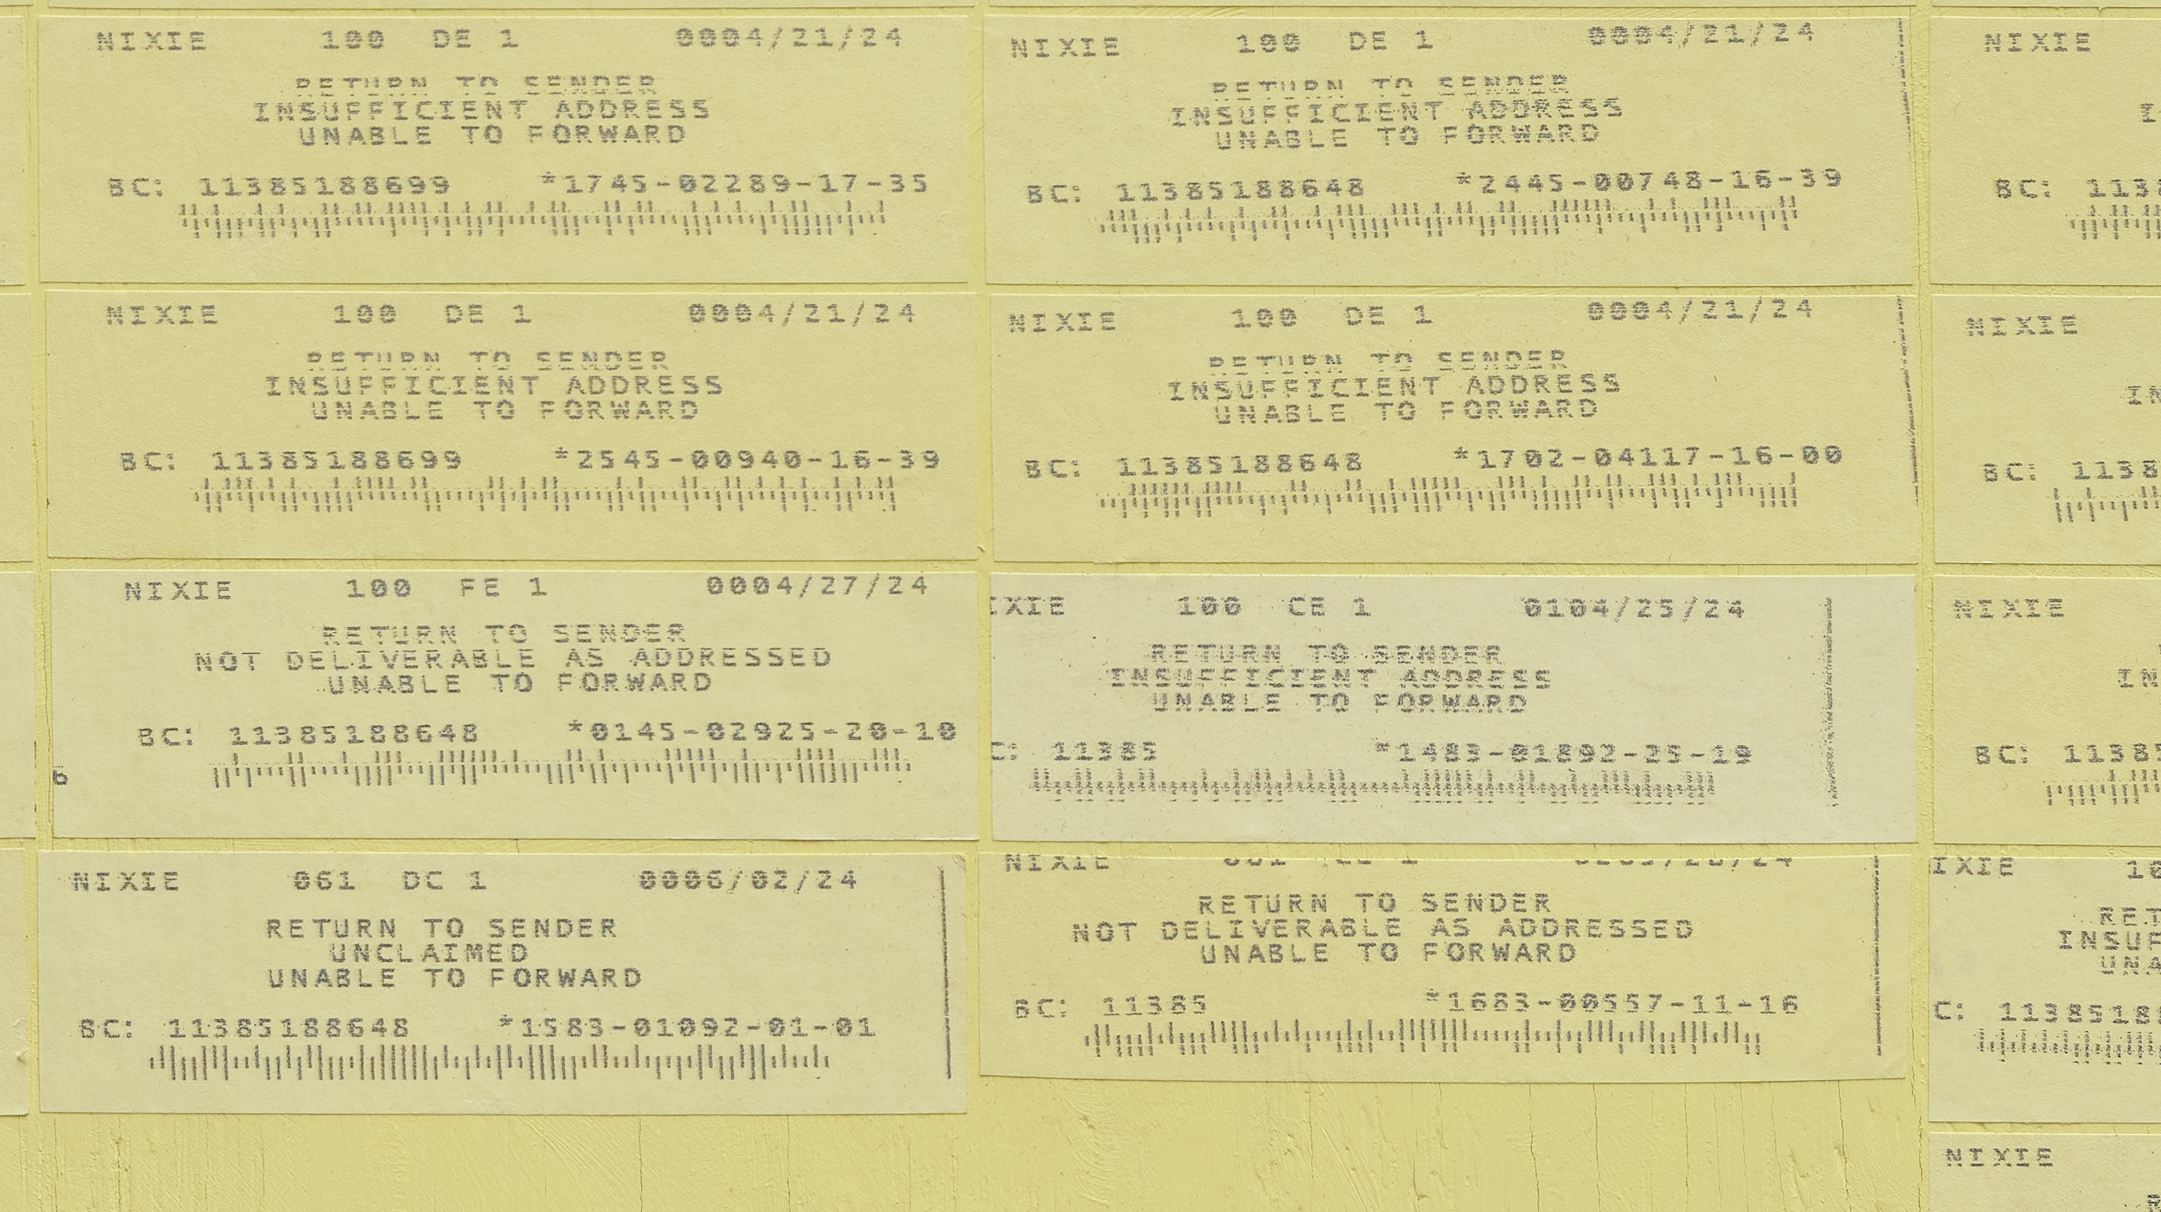 NIXIE 100 DE 1 0004/21/24
RETURN TO SENDER
INSUFFICIENT ADDRESS
UNABLE TO FORWARD
BC: 11385188699 *1745-02289-17-35
NIXIE 100 DE 1 0004/21/24
RETURN TO SENDER
INSUFFICIENT ADDRESS
UNABLE TO FORWARD
BC: 11385188648 *2445-00748-16-39
NIXIE
BC: 1138
NIXIE 100 DE 1 0004/21/24
RETURN TO SENDER
INSUFFICIENT ADDRESS
UNABLE TO FORWARD
BC: 11385188699 *2545-00940-16-39
NIXIE 100 DE 1 0004/21/24
RETURN TO SENDER
INSUFFICIENT ADDRESS
UNABLE TO FORWARD
BC: 11385188648 *1702-04117-16-00
NIXIE
IN
BC: 1138
6
NIXIE 100 FE 1 0004/27/24
RETURN TO SENDER
NOT DELIVERABLE AS ADDRESSED
UNABLE TO FORWARD
BC: 11385188648 *0145-02925-20-10
IXIE 100 CE 1 0104/25/24
RETURN TO SENDER
INSUFFICIENT ADDRESS
UNABLE TO FORWARD
C: 11385 *1483-01892-25-19
NIXIE
IN
BC: 11385
NIXIE 061 DC 1 0006/02/24
RETURN TO SENDER
UNCLAIMED
UNABLE TO FORWARD
BC: 11385188648 *1583-01092-01-01
NIXIE
RETURN TO SENDER
NOT DELIVERABLE AS ADDRESSED
UNABLE TO FORWARD
BC: 11385 *1683-00557-11-16
IXIE 10
RET
INSUF
UNA
C: 1138518
NIXIE